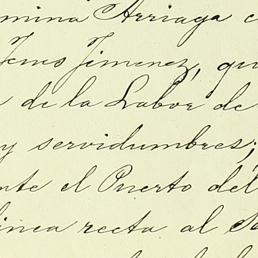 mina Arriaga c
Jesus Jimenez, qu
de la Labor de
y servidumbres;
nte el Puerto del
linea recta al